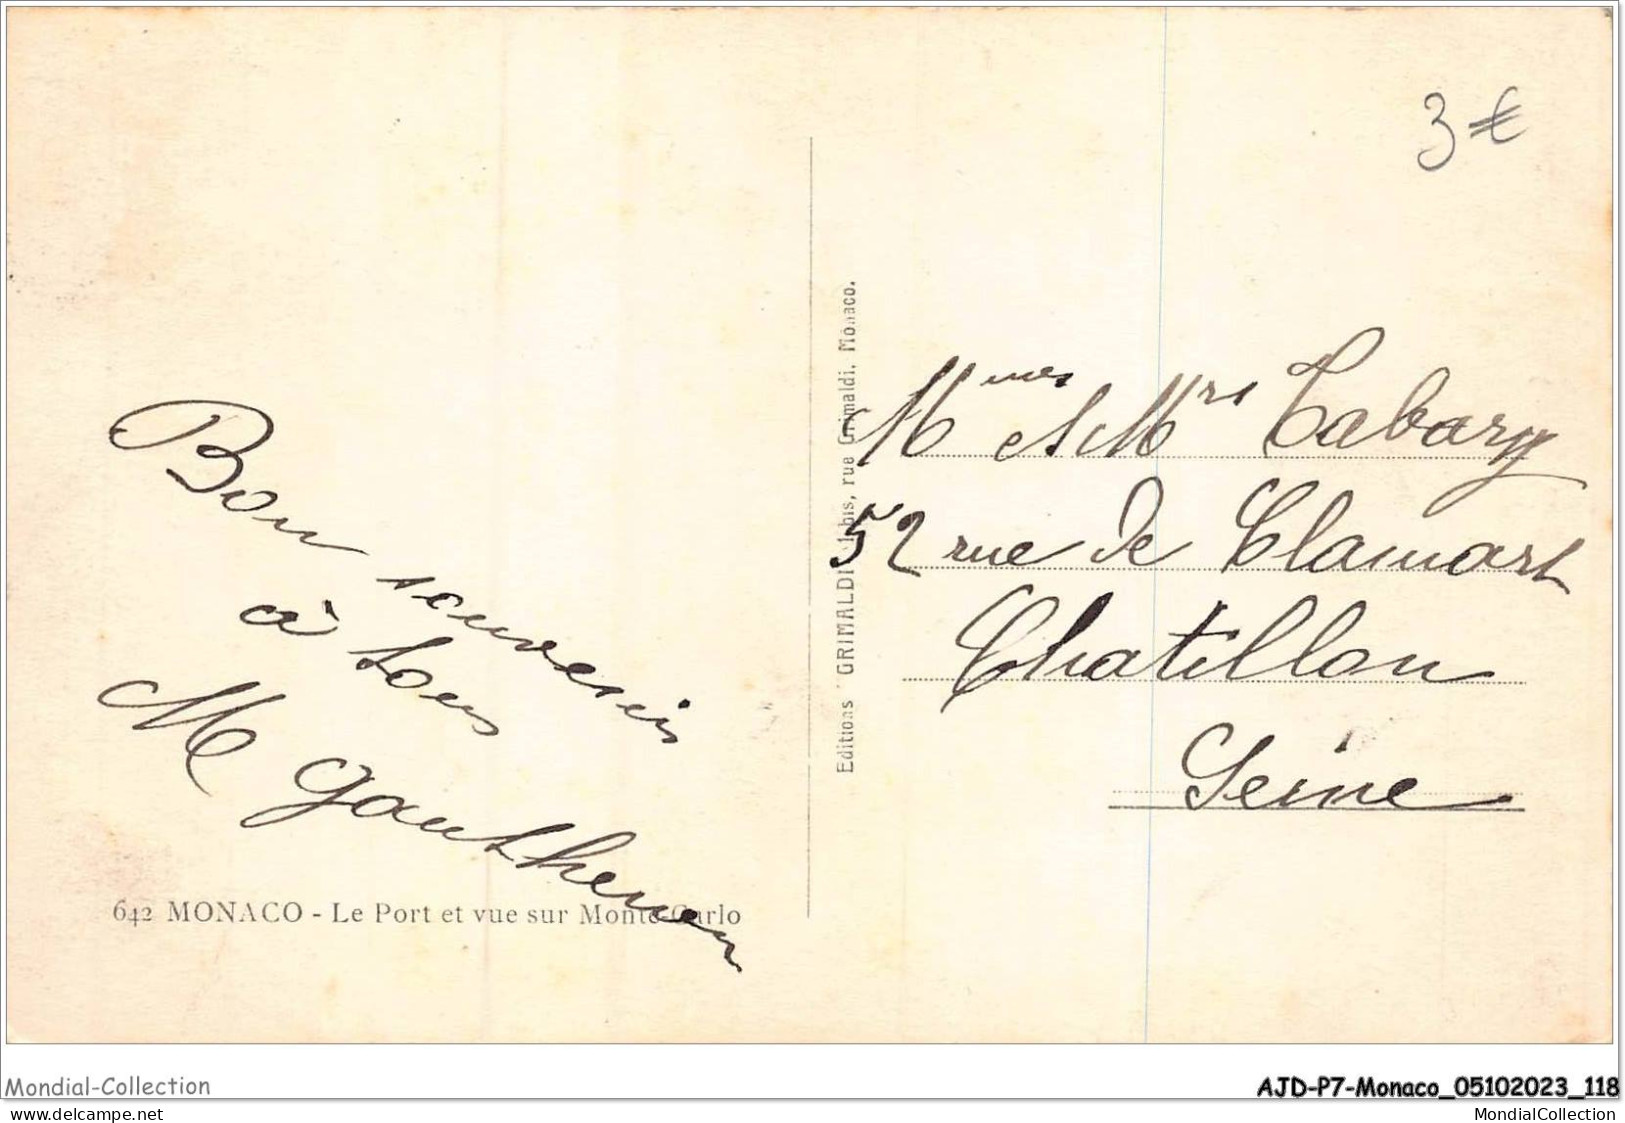 3 €
Bon souvenir
à tous
M Gauthenon
642 MONACO - Le Port et vue sur Monte-Carlo
Editions GRIMALDI, 1 bis, rue Grimaldi, Monaco.
Mmes et Mrs Tabary
52 rue de Clamart
Chatillon
Seine
Mondial-Collection
AJD-P7-Monaco_05102023_118
www.delcampe.net
MondialCollection